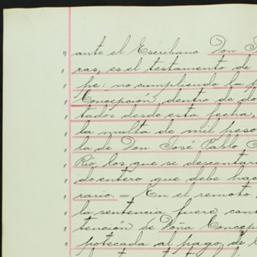 ante el Escribano Don
ras, es el testamento de
fe: no cumpliendo la
Concepción, dentro de do
tados desde esta fecha,
la multa de mil peso
la de Don José Pablo
Rio, los que se descontara
do entero que debe hac
rario. — En el remoto
la sentencia fuere con
tención de Doña Concep
potecada al pago, de